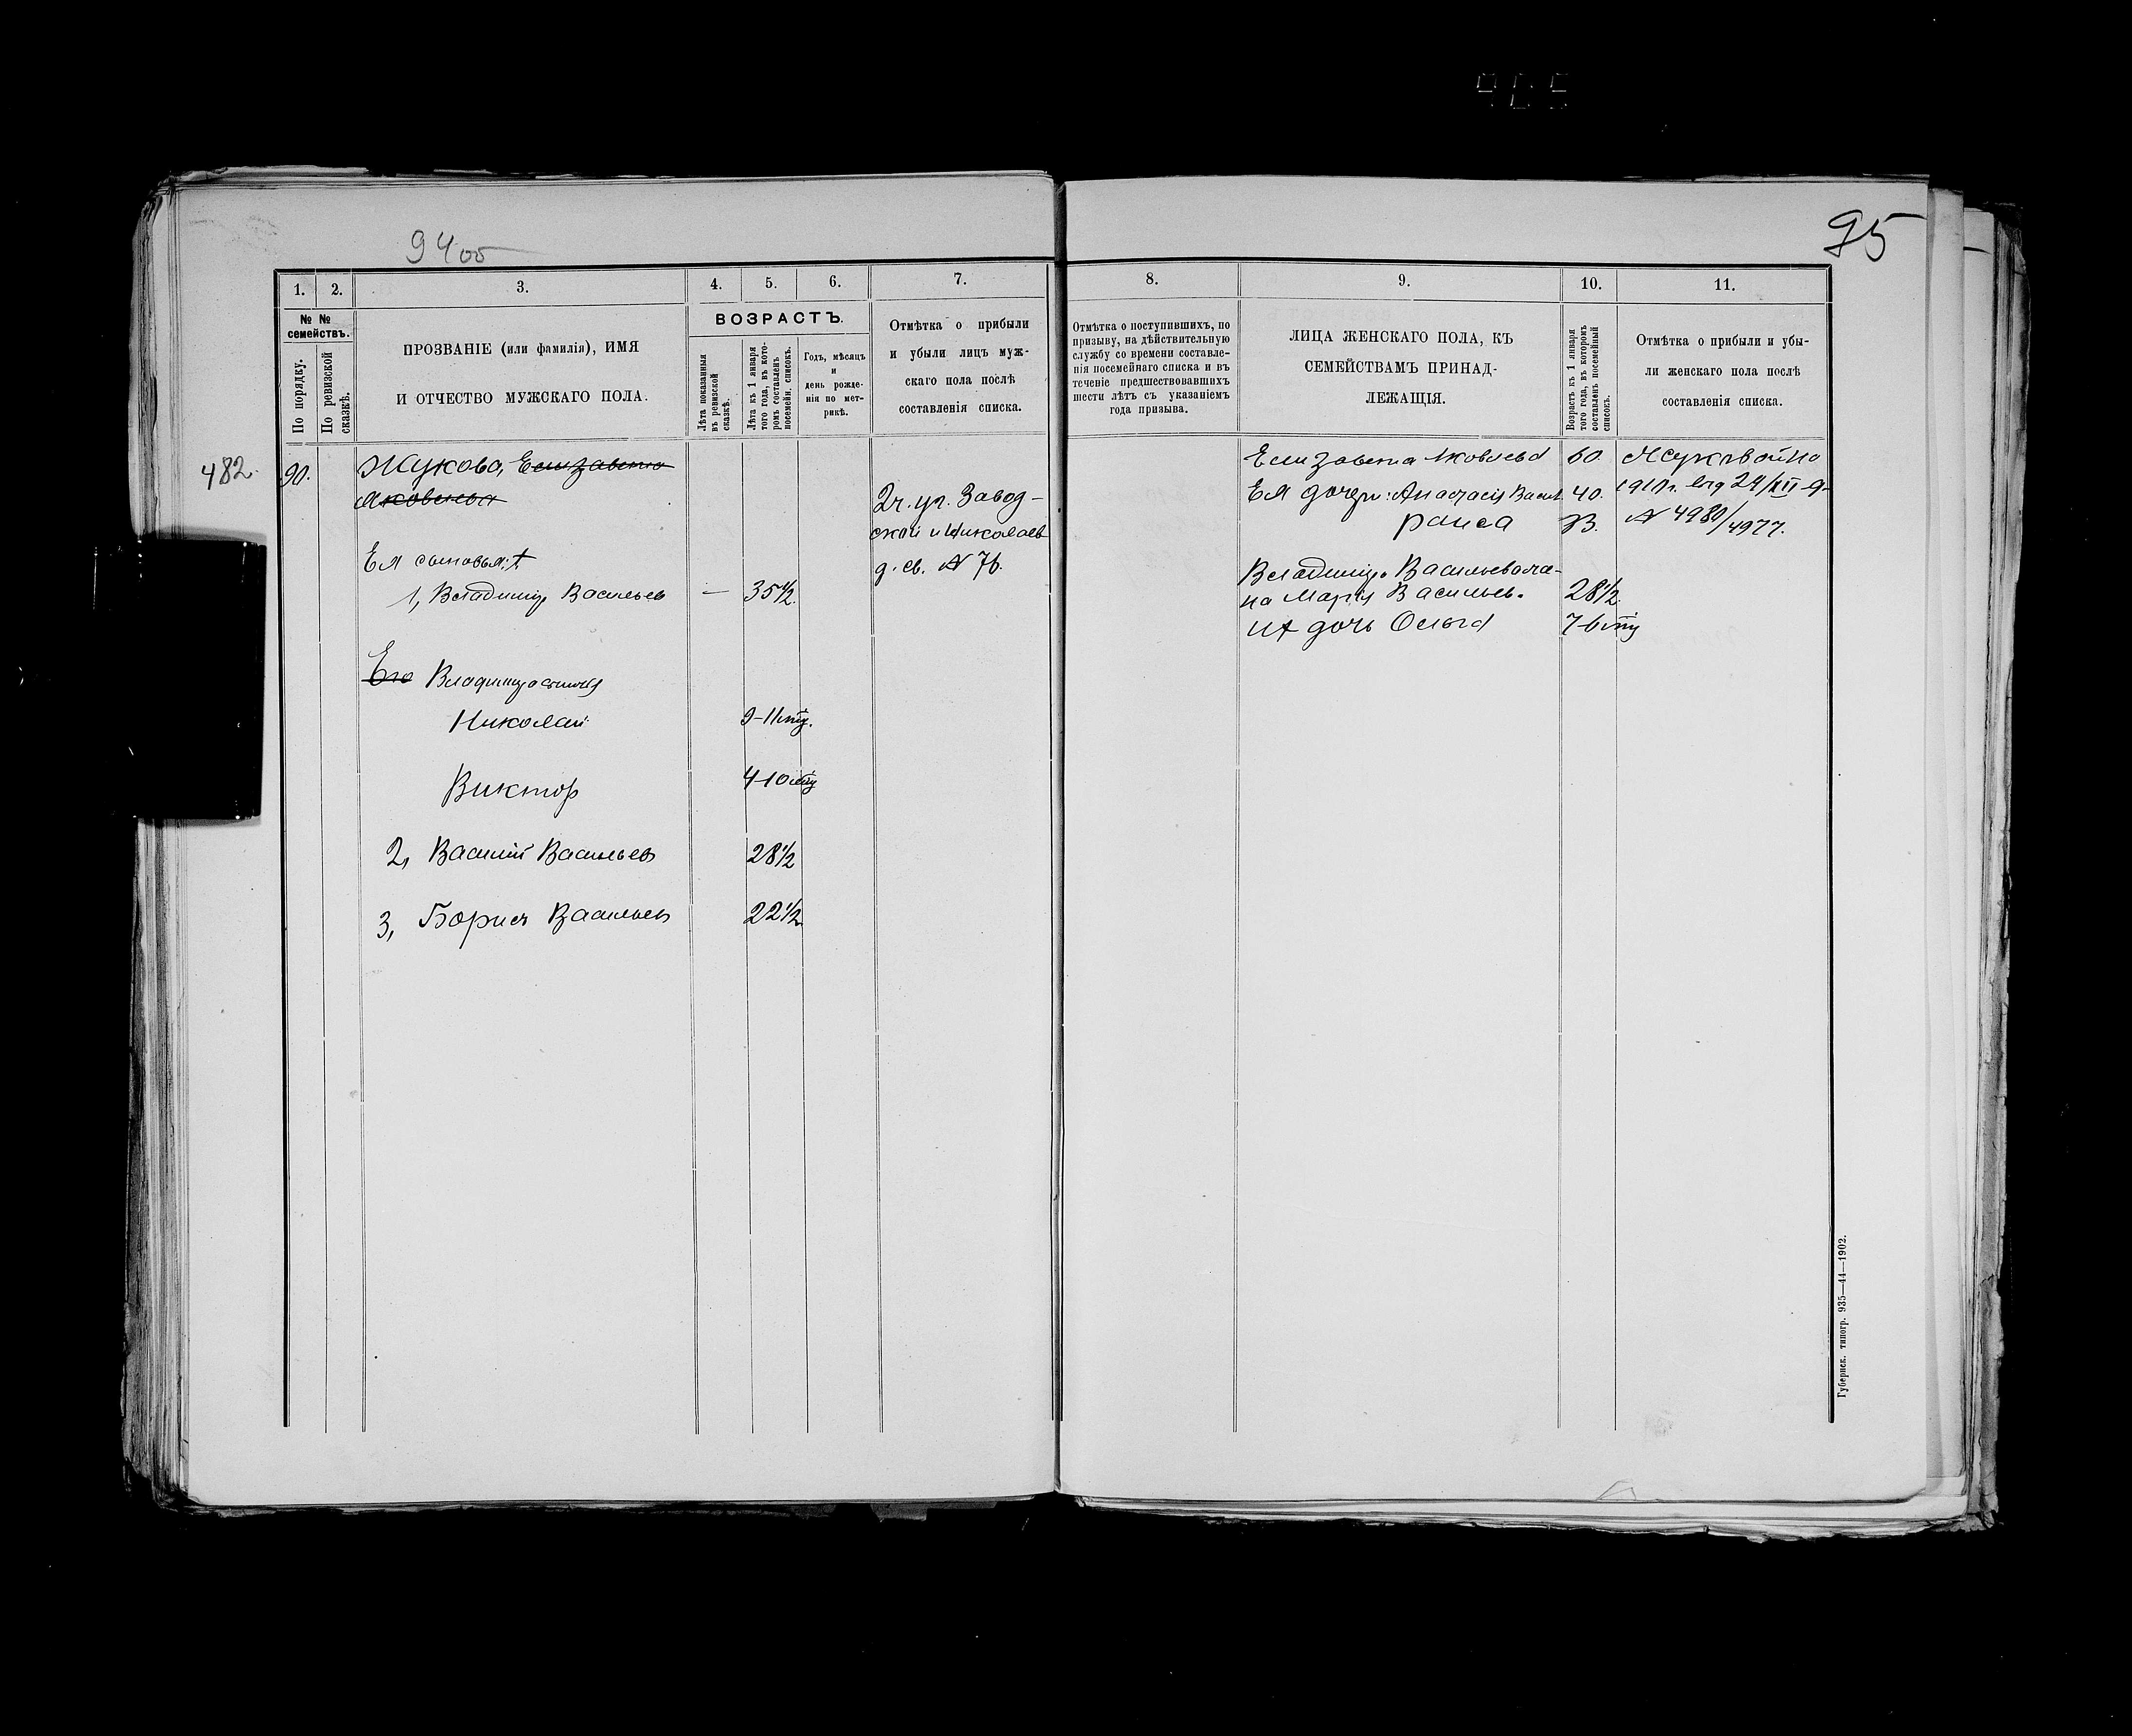 94об
95
1.
2.
3.
4.
5.
6.
7.
8.
9.
10.
11.
№ №
семействъ.
По порядку.
По ревизской
сказкѣ.
ПРОЗВАНІЕ (или фамилія), ИМЯ
И ОТЧЕСТВО МУЖСКАГО ПОЛА.
ВОЗРАСТЪ.
Лѣта показанныя
въ ревизской
сказкѣ.
Лѣта къ 1 января
того года, въ кото-
ромъ составленъ
посемейн. списокъ.
Годъ, мѣсяцъ
и
день рожде-
нія по мет-
рикѣ.
Отмѣтка о прибыли
и убыли лицъ муж-
скаго пола послѣ
составленія списка.
Отмѣтка о поступившихъ, по
призыву, на дѣйствительную
службу со времени составле-
нія посемейнаго списка и въ
теченіе предшествовавшихъ
шести лѣтъ съ указаніемъ
года призыва.
ЛИЦА ЖЕНСКАГО ПОЛА, КЪ
СЕМЕЙСТВАМЪ ПРИНАД-
ЛЕЖАЩІЯ.
Возрастъ къ 1 января
того года, въ которомъ
составленъ посемейный
списокъ.
Отмѣтка о прибыли и убы-
ли женскаго пола послѣ
составленія списка.
482.
90.
Жукова, Елизавета
Яковлева
2ч. уг. Завод-
ской и Николаев
д. св. № 76.
Ея сыновья:
1, Владиміръ Васильев
—
35½.
Его Владиміра сыновья
Николай
9-11 мц.
Виктор
4-10 мц
2, Василій Васильев
28½
3, Борисъ Васильев
22½
Елизавета Яковлева
60.
Ея дочери: Анастасія Васил.
40.
Раиса
Владиміра Васильева же-
на Марія Васильев.
28½.
их дочь Ольга
7-6 мц
№ 4980/4977.
Губернск. типогр. 935—44—1902.